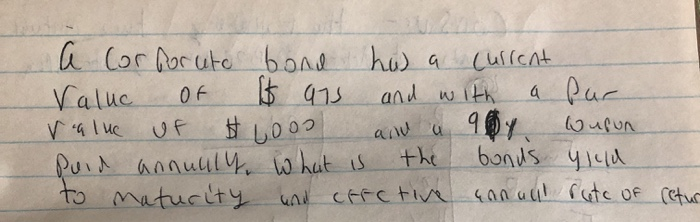 a corporate bond has a current
Value OF $ 975 and with a Par
value OF $1,000 and a 9% coupon
Paid annually. What is the bond's yield
to maturity and effective annual rate OF retur